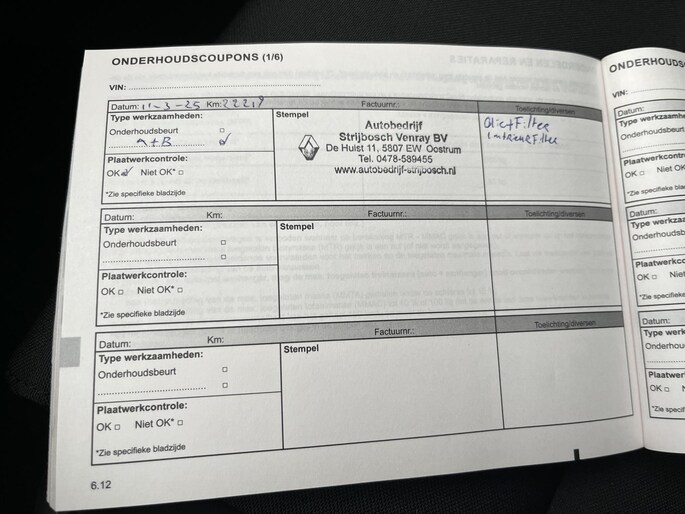 ONDERHOUDSCOUPONS (1/6)
VIN:
Datum: 11-3-25 Km: 22219 Factuurnr.: Toelichting/diversen
Type werkzaamheden:
Onderhoudsbeurt
A+B
Plaatwerkcontrole:
OK Niet OK*
*Zie specifieke bladzijde
Stempel
Autobedrijf
Strijbosch Venray BV
De Hulst 11, 5807 EW Oostrum
Tel. 0478-589455
www.autobedrijf-strijbosch.nl
Olie+Filter
InterieurFilter
Datum: Km: Factuurnr.: Toelichting/diversen
Type werkzaamheden:
Onderhoudsbeurt
Plaatwerkcontrole:
OK Niet OK*
*Zie specifieke bladzijde
Stempel
Datum: Km: Factuurnr.: Toelichting/diversen
Type werkzaamheden:
Onderhoudsbeurt
Plaatwerkcontrole:
OK Niet OK*
*Zie specifieke bladzijde
Stempel
6.12
ONDERHOUDSC
VIN:
Datum:
Type werkzaamh
Onderhoudsbeu
Plaatwerkcontro
OK Niet
*Zie specifieke bla
Datum:
Type werkzaa
Onderhoudsb
Plaatwerkco
OK Nie
*Zie specifieke
Datum:
Type werkza
Onderhoud
Plaatwer
OK
*Zie speci